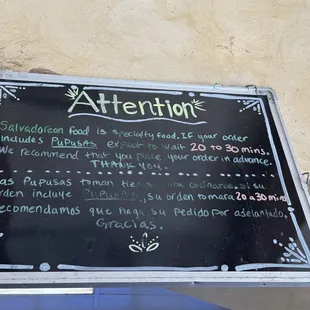 Attention
Salvadorean food is specialty food. If your order
includes Pupusas expect to wait 20 to 30 mins.
We recommend that you place your order in advance.
THANK YOU.
as Pupusas toman para cocinarse. si su
orden incluye Pupusas, su orden tomara 20 a 30 mins
recomendamos que haga su pedido por adelantado.
Gracias.